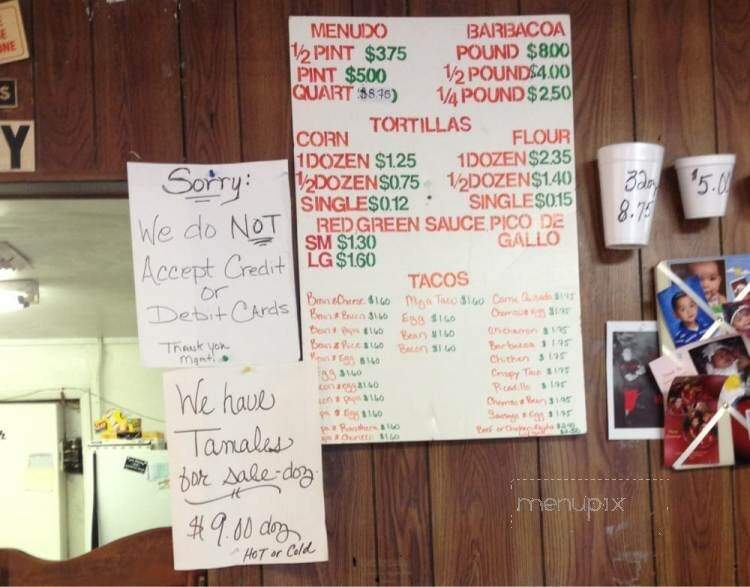 NE
S
Y
MENUDO
1/2 PINT $375
PINT $500
QUART $8.75)
BARBACOA
POUND $800
1/2 POUND $4.00
1/4 POUND $2.50
TORTILLAS
CORN
1 DOZEN $1.25
1/2 DOZEN $0.75
SINGLE $0.12
FLOUR
1 DOZEN $2.35
1/2 DOZEN $1.40
SINGLE $0.15
RED GREEN SAUCE, PICO DE
GALLO
SM $1.30
LG $1.60
TACOS
Bean & Cheese $1.60
Bean & Bacon $1.60
Bean & Papa $1.60
Bean & Rice $1.60
Bean & Egg $1.60
$1.60
Egg $1.60
Papa $1.60
Egg $1.60
$1.60
Chorizo $1.60
Taco $1.60
Egg $1.60
Bean $1.60
Bacon $1.60
Carne Guisada $1.95
Chorizo & Egg $1.95
Chicharron $1.95
Barbacoa $1.95
Chicken $1.95
Crispy Taco $1.95
Picadillo $1.95
Chorizo & Bean $1.95
Sausage & Egg $1.95
Beef or Chicken Fajita
Sorry:
We do NOT
Accept Credit
or
Debit Cards
Thank you
Mgmt.
We have
Tamales
for sale - doz.
$9.00 doz
HOT or Cold
32oz
8.75
$5.0
menupix